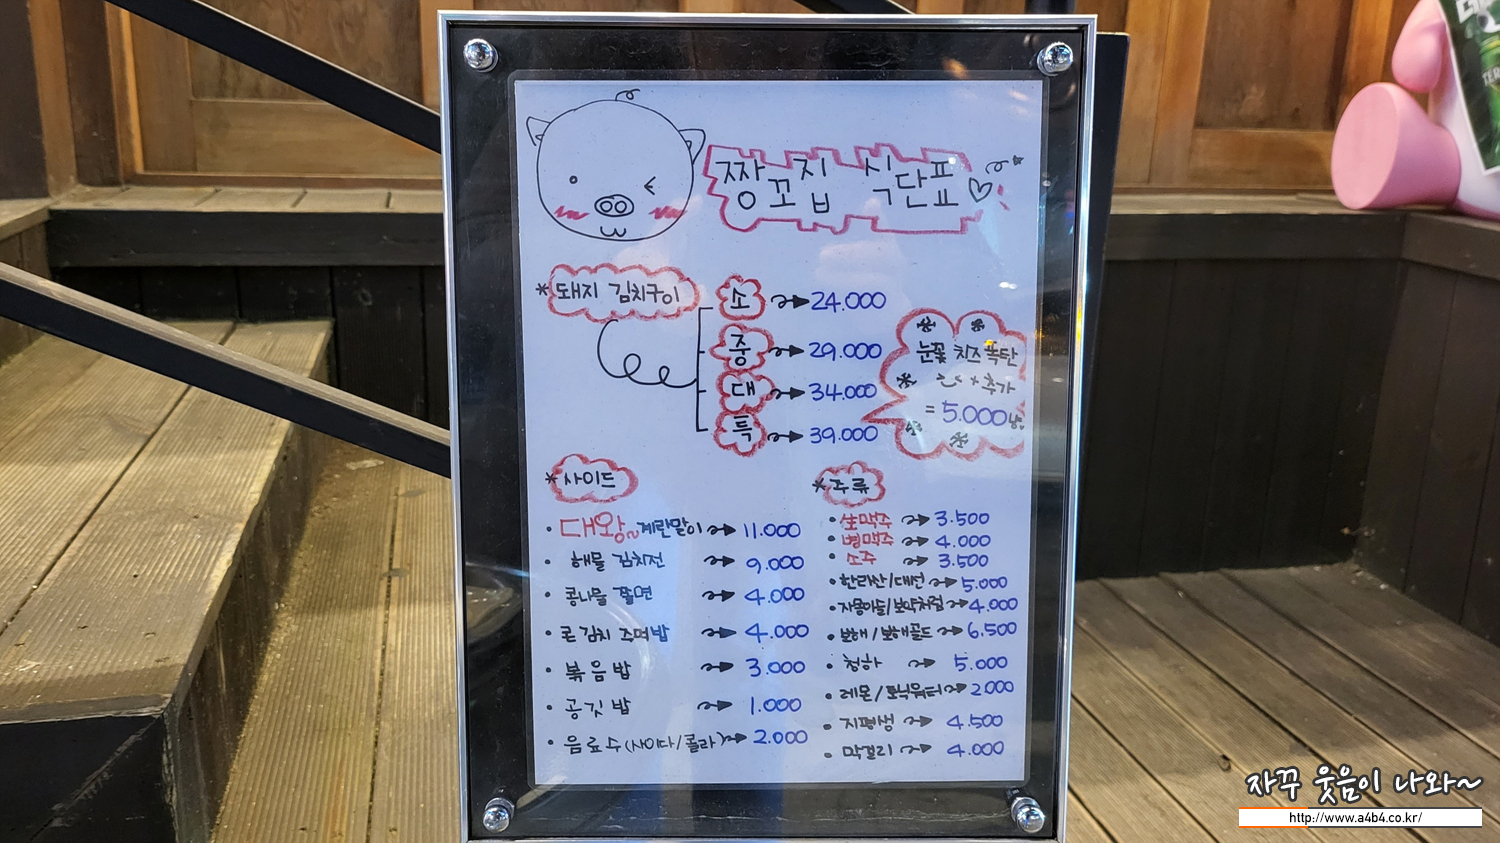 짱꼬집 식단표
* 돼지 김치구이
소 → 24.000
중 → 29.000
대 → 34.000
특 → 39.000
눈꽃 치즈폭탄
+ 추가
= 5.000냥
* 사이드
• 대왕~계란말이 → 11.000
• 해물 김치전 → 9.000
• 콩나물 쫄면 → 4.000
• 콘김치 주먹밥 → 4.000
• 볶음밥 → 3.000
• 공깃밥 → 1.000
• 음료수(사이다/콜라) → 2.000
* 주류
• 生막주 → 3.500
• 병맥주 → 4.000
• 소주 → 3.500
• 한라산/대선 → 5.000
• 자몽이슬/보약처럼 → 4.000
• 보해/보해골드 → 6.500
• 청하 → 5.000
• 레몬/토닉워터 → 2.000
• 지평생 → 4.500
• 막걸리 → 4.000
TER
자꾸 웃음이 나와~
http://www.a4b4.co.kr/